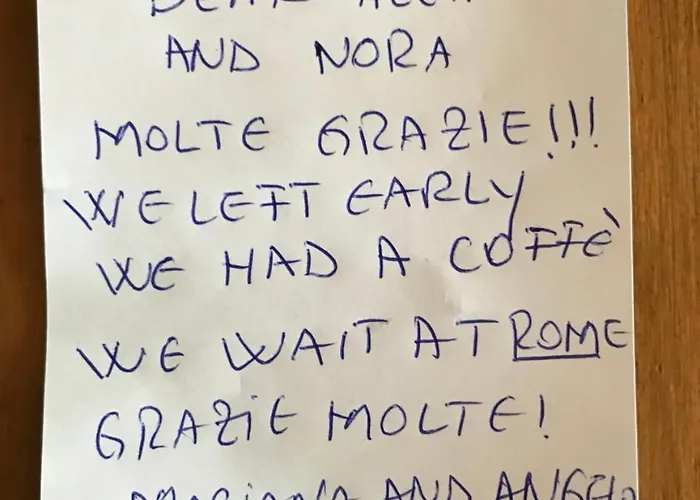 DEAR
AND NORA
MOLTE GRAZIE!!!
WE LEFT EARLY
WE HAD A COFFÈ
WE WAIT AT ROME
GRAZIE MOLTE!
AND ANGELO